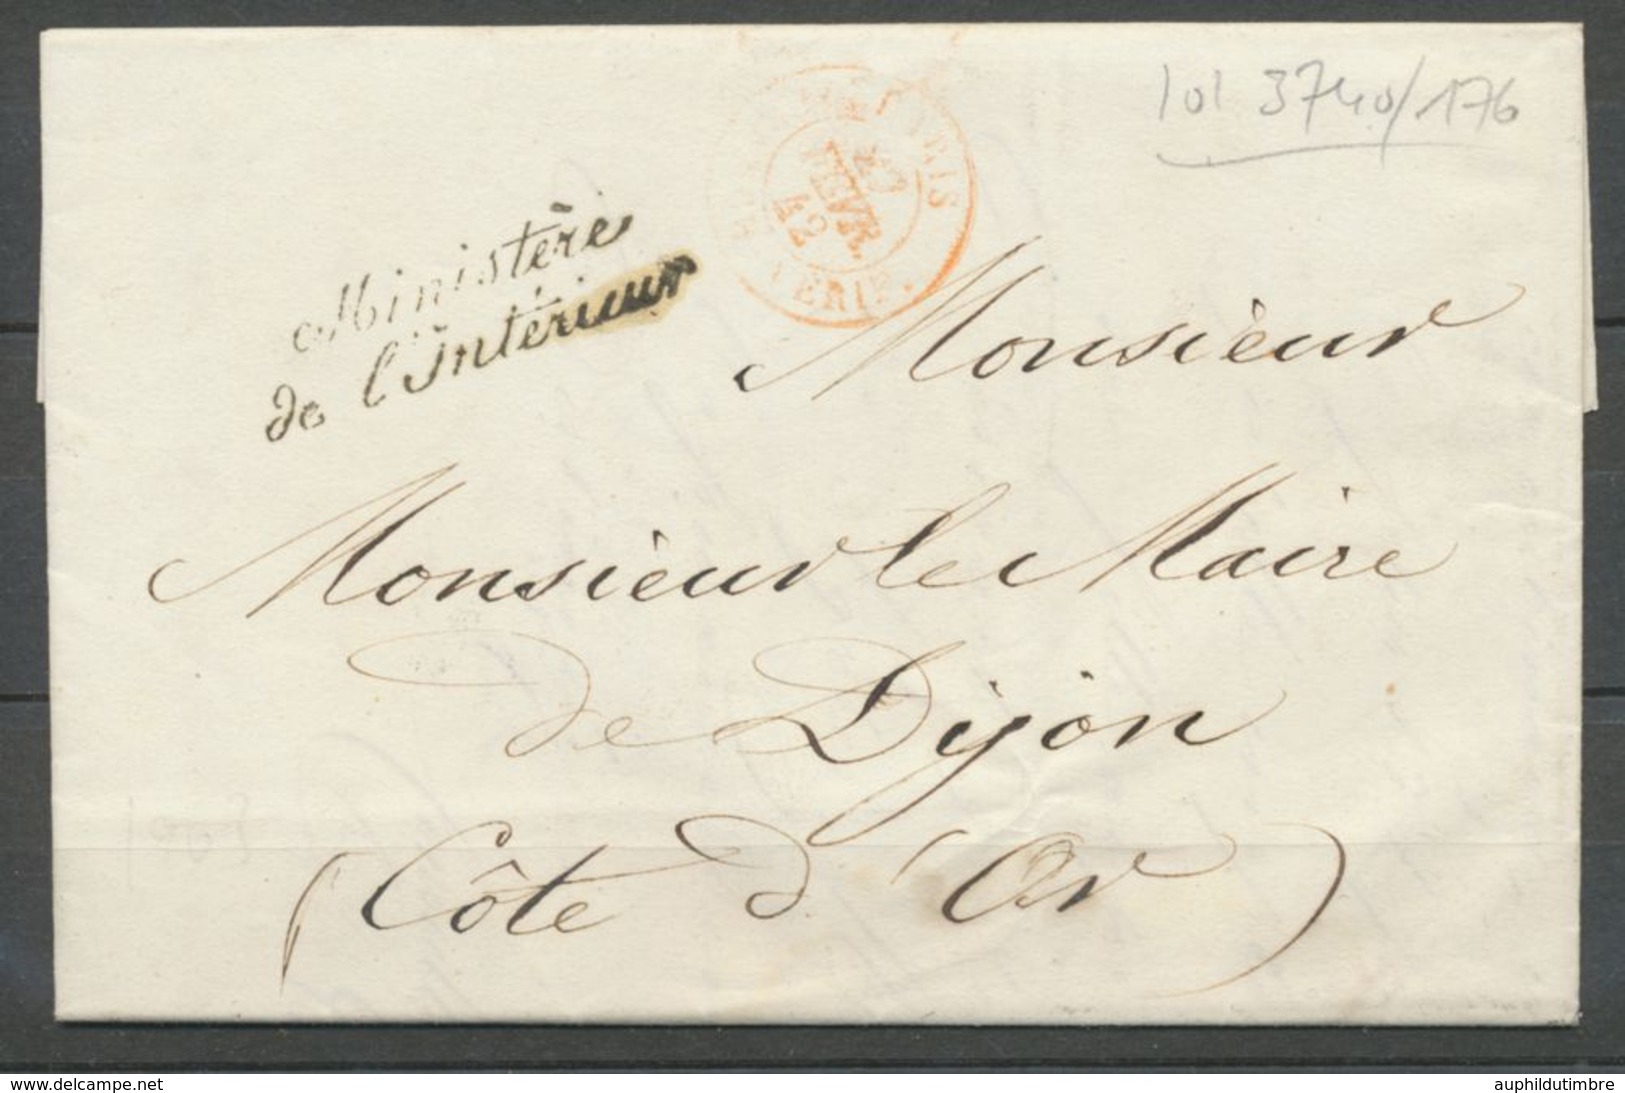 lol 3740/176
Ministère
de l'Intérieur
FEVR.
42
Monsieur
Monsieur le Maire
de Dijon
(Côte d'Or)
www.delcampe.net
auphildutimbre